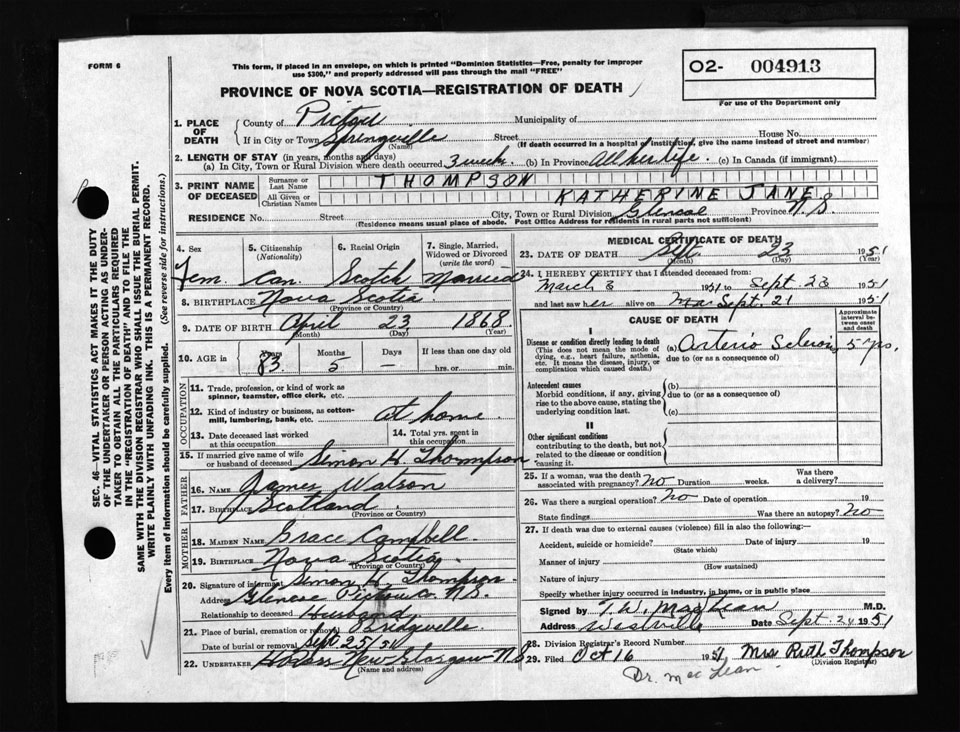 FORM 6
This form, if placed in an envelope, on which is printed "Dominion Statistics—Free, penalty for improper
use $300," and properly addressed will pass through the mail "FREE"
PROVINCE OF NOVA SCOTIA—REGISTRATION OF DEATH
O2- 004913
For use of the Department only
1. PLACE OF DEATH
County of Pictou Municipality of
If in City or Town Springville Street House No.
(Name) (If death occurred in a hospital or institution, give the name instead of street and number)
2. LENGTH OF STAY (in years, months and days)
(a) In City, Town or Rural Division where death occurred 3 weeks (b) In Province All her life. (c) In Canada (if immigrant)
3. PRINT NAME OF DECEASED
Surname or Last Name THOMPSON
All Given or Christian Names KATHERINE JANE
RESIDENCE No. Street City, Town or Rural Division Province N.S.
(Residence means usual place of abode. Post Office Address for residents in rural parts not sufficient)
4. Sex Fem.
5. Citizenship (Nationality) Can.
6. Racial Origin Scotch
7. Single, Married, Widowed or Divorced (write the word) Married
8. BIRTHPLACE Nova Scotia
(Province or Country)
9. DATE OF BIRTH April 23 1868
(Month) (Day) (Year)
10. AGE in Years 83 Months 5 Days — If less than one day old
hrs. or min.
OCCUPATION
11. Trade, profession, or kind of work as
spinner, teamster, office clerk, etc.
12. Kind of industry or business, as cotton-
mill, lumbering, bank, etc. at home
13. Date deceased last worked
at this occupation
14. Total yrs. spent in
this occupation
15. If married give name of wife
or husband of deceased Simon H. Thompson
FATHER
16. Name James Watson
17. Birthplace Scotland
(Province or Country)
MOTHER
18. MAIDEN NAME Grace Campbell.
19. BIRTHPLACE Nova Scotia
(Province or Country)
20. Signature of informant Simon H. Thompson.
Address Pictou Co. N.S.
Relationship to deceased Husband
21. Place of burial, cremation or removal Bridgeville
Date of burial or removal Sept 25/51
22. UNDERTAKER New Glasgow N.S.
(Name and address)
MEDICAL CERTIFICATE OF DEATH
23. DATE OF DEATH 23 1951
(Month) (Day) (Year)
24. I HEREBY CERTIFY that I attended deceased from:
March 3 1951 to Sept. 23 1951
and last saw her alive on Sept. 21 1951
CAUSE OF DEATH
Approximate interval between onset and death
I
Disease or condition directly leading to death
(This does not mean the mode of
dying, e.g., heart failure, asthenia,
etc. It means the disease, injury, or
complication which caused death.)
(a) Arterio 5 yrs.
due to (or as a consequence of)
Antecedent causes
Morbid conditions, if any, giving
rise to the above cause, stating the
underlying condition last.
(b)
due to (or as a consequence of)
(c)
II
Other significant conditions
contributing to the death, but not
related to the disease or condition
causing it.
25. If a woman, was the death
associated with pregnancy? No Duration weeks. Was there
a delivery?
26. Was there a surgical operation? No Date of operation 19
State findings Was there an autopsy? No
27. If death was due to external causes (violence) fill in also the following:—
Accident, suicide or homicide? Date of injury 19
(State which)
Manner of injury
(How sustained)
Nature of injury
Specify whether injury occurred in industry, in home, or in public place
Signed by MacLean M.D.
Address Westville Date Sept. 24 1951
28. Division Registrar's Record Number
29. Filed Oct 16 1951 Mrs Ruth Thompson
(Division Registrar)
Dr. MacLean
SEC. 46—VITAL STATISTICS ACT MAKES IT THE DUTY
OF THE UNDERTAKER OR PERSON ACTING AS UNDER-
TAKER TO OBTAIN ALL THE PARTICULARS REQUIRED
IN THE "REGISTRATION OF DEATH" AND TO FILE THE
SAME WITH THE DIVISION REGISTRAR WHO SHALL ISSUE THE BURIAL PERMIT.
WRITE PLAINLY WITH UNFADING INK. THIS IS A PERMANENT RECORD.
Every item of information should be carefully supplied. (See reverse side for instructions.)